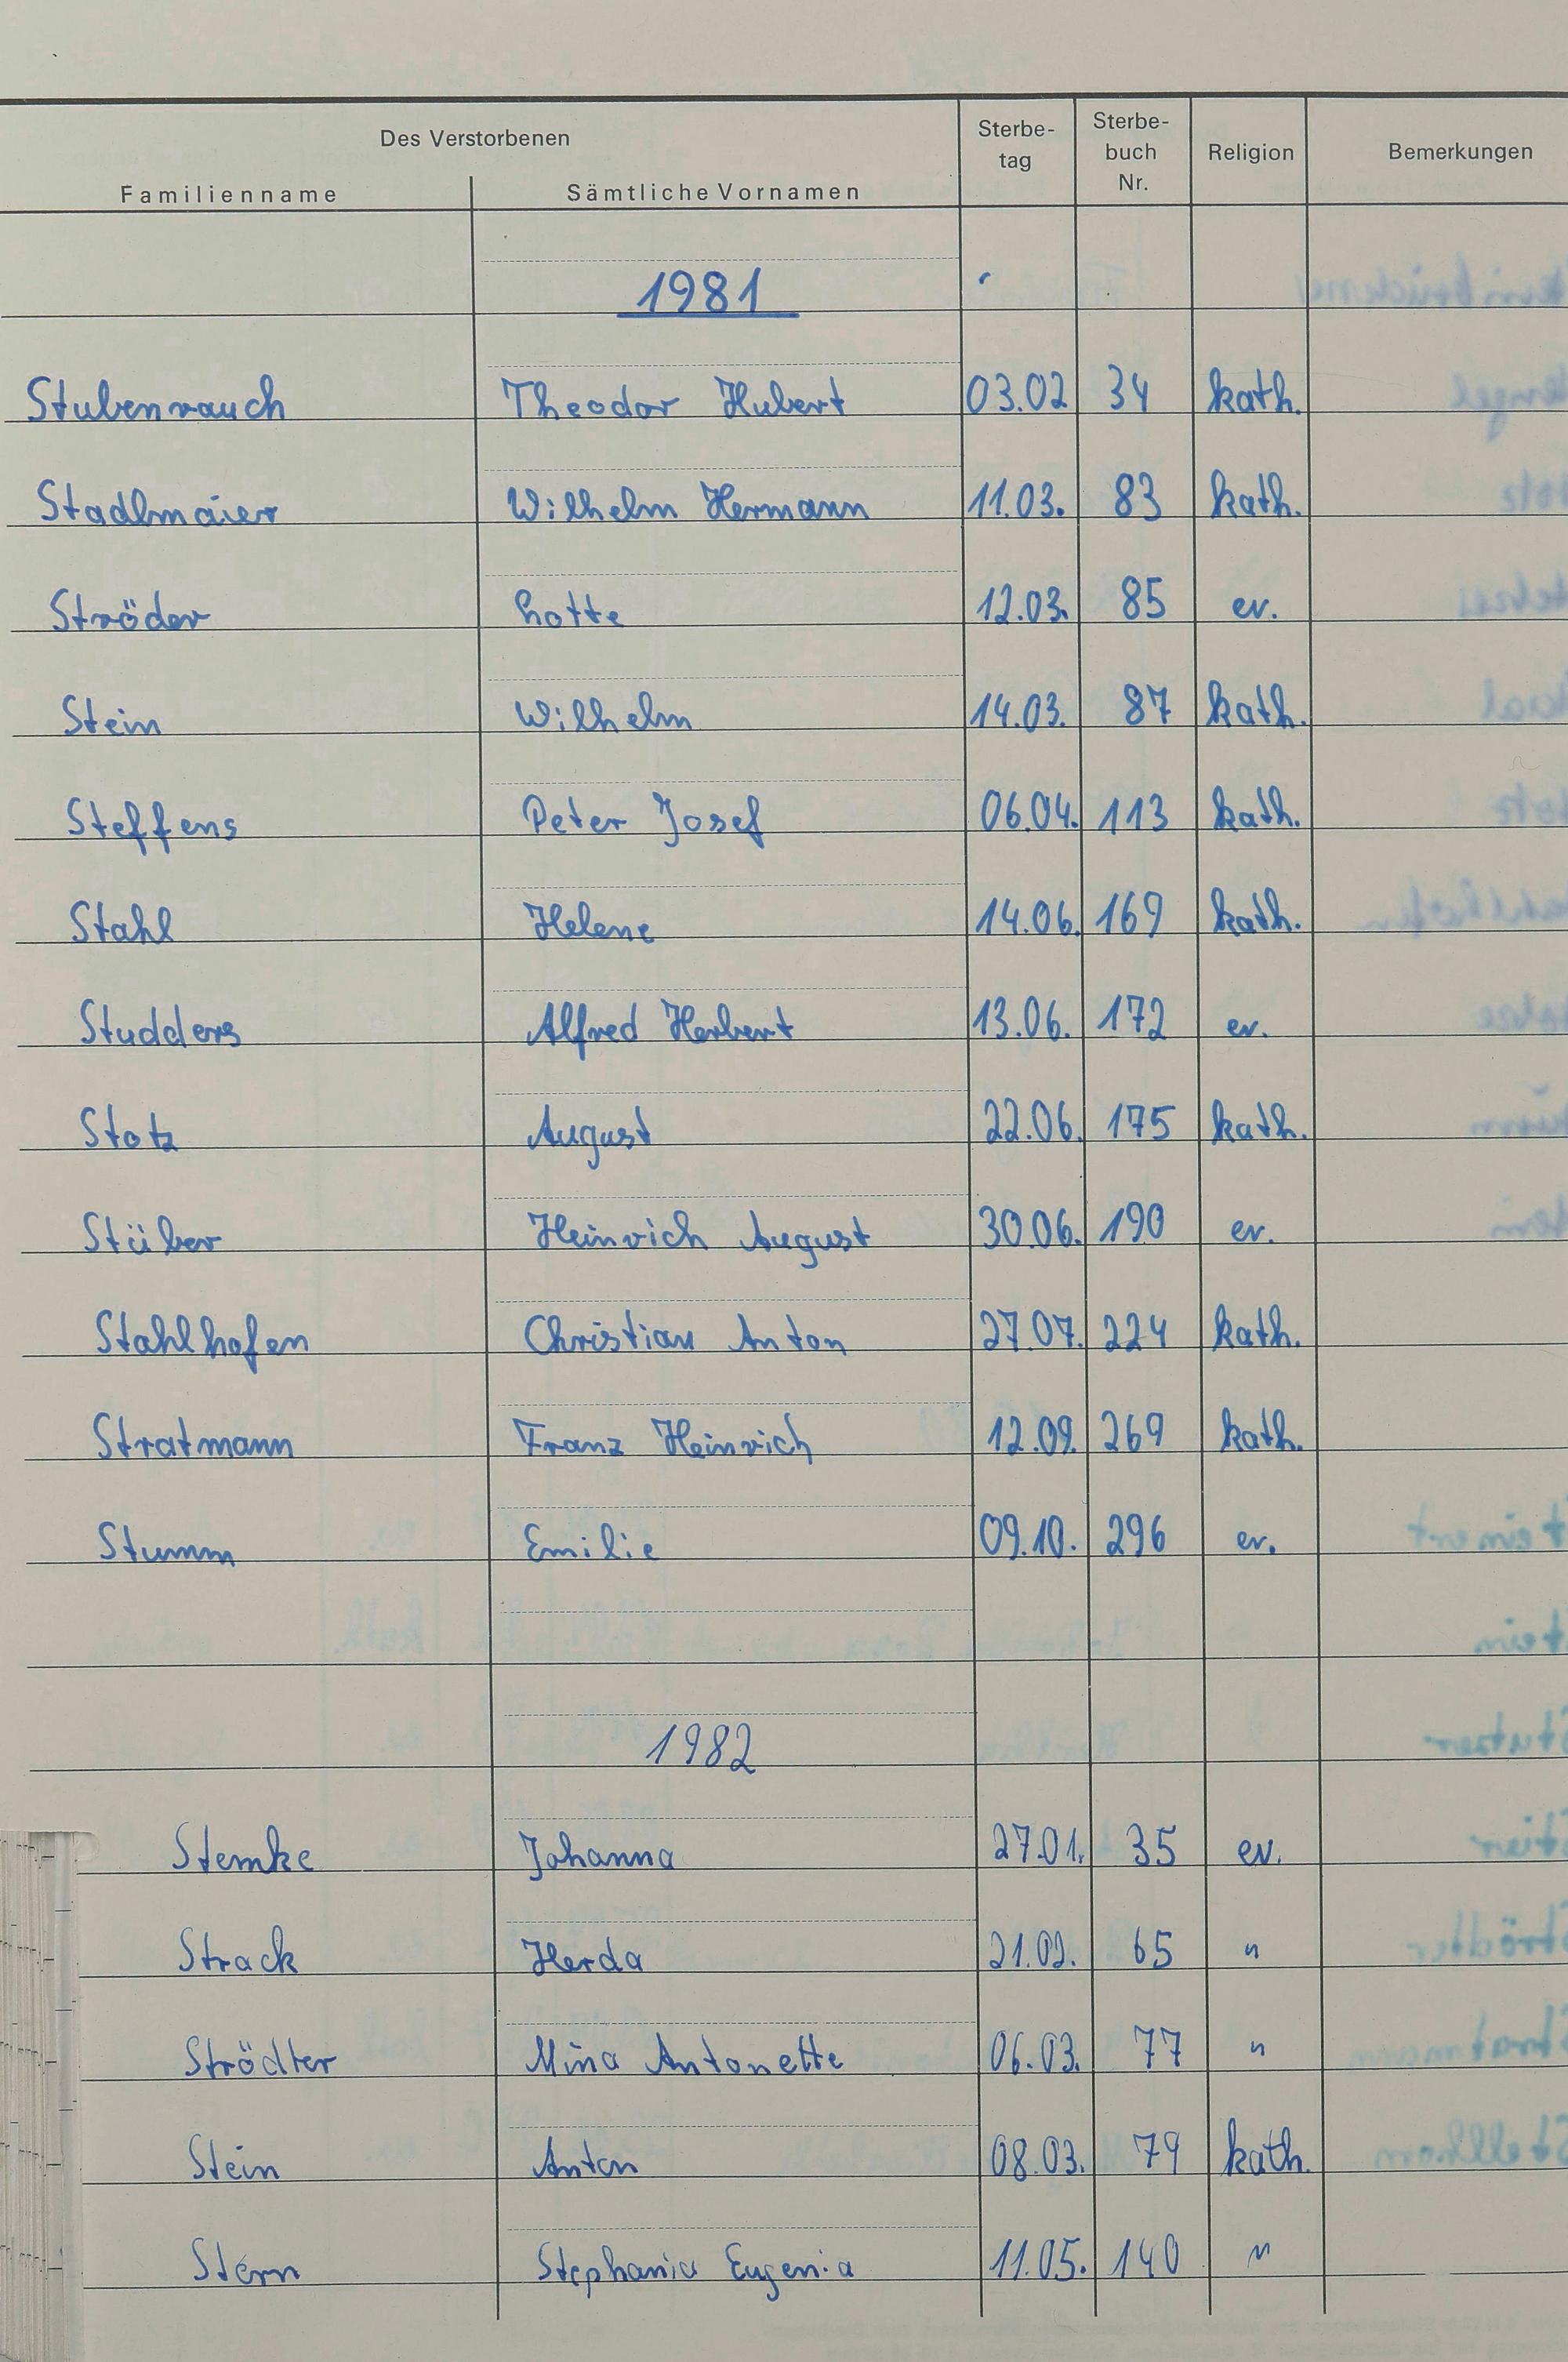 Des Verstorbenen Sterbe- Sterbe- Religion Bemerkungen
tag buch
Familienname Sämtliche Vornamen Nr.
1981
Stubenrauch Theodor Hubert 03.02 34 kath.
Stadlmaier Wilhelm Hermann 11.03. 83 kath.
Ströder Lotte 12.03. 85 ev.
Stein Wilhelm 14.03. 87 kath.
Steffens Peter Josef 06.04. 113 kath.
Stahl Helene 14.06. 169 kath.
Studders Alfred Herbert 13.06. 172 ev.
Stotz August 22.06. 175 kath.
Stüber Heinrich August 30.06. 190 ev.
Stahlhofen Christian Anton 27.07. 224 kath.
Stratmann Franz Heinrich 12.09. 269 kath.
Stumm Emilie 09.10. 296 ev.
1982
Stemke Johanna 27.01. 35 ev.
Strack Herda 21.02. 65 "
Strödter Mina Antonette 06.03. 77 "
Stein Anton 08.03. 79 kath.
Stern Stephania Eugenia 11.05. 140 "